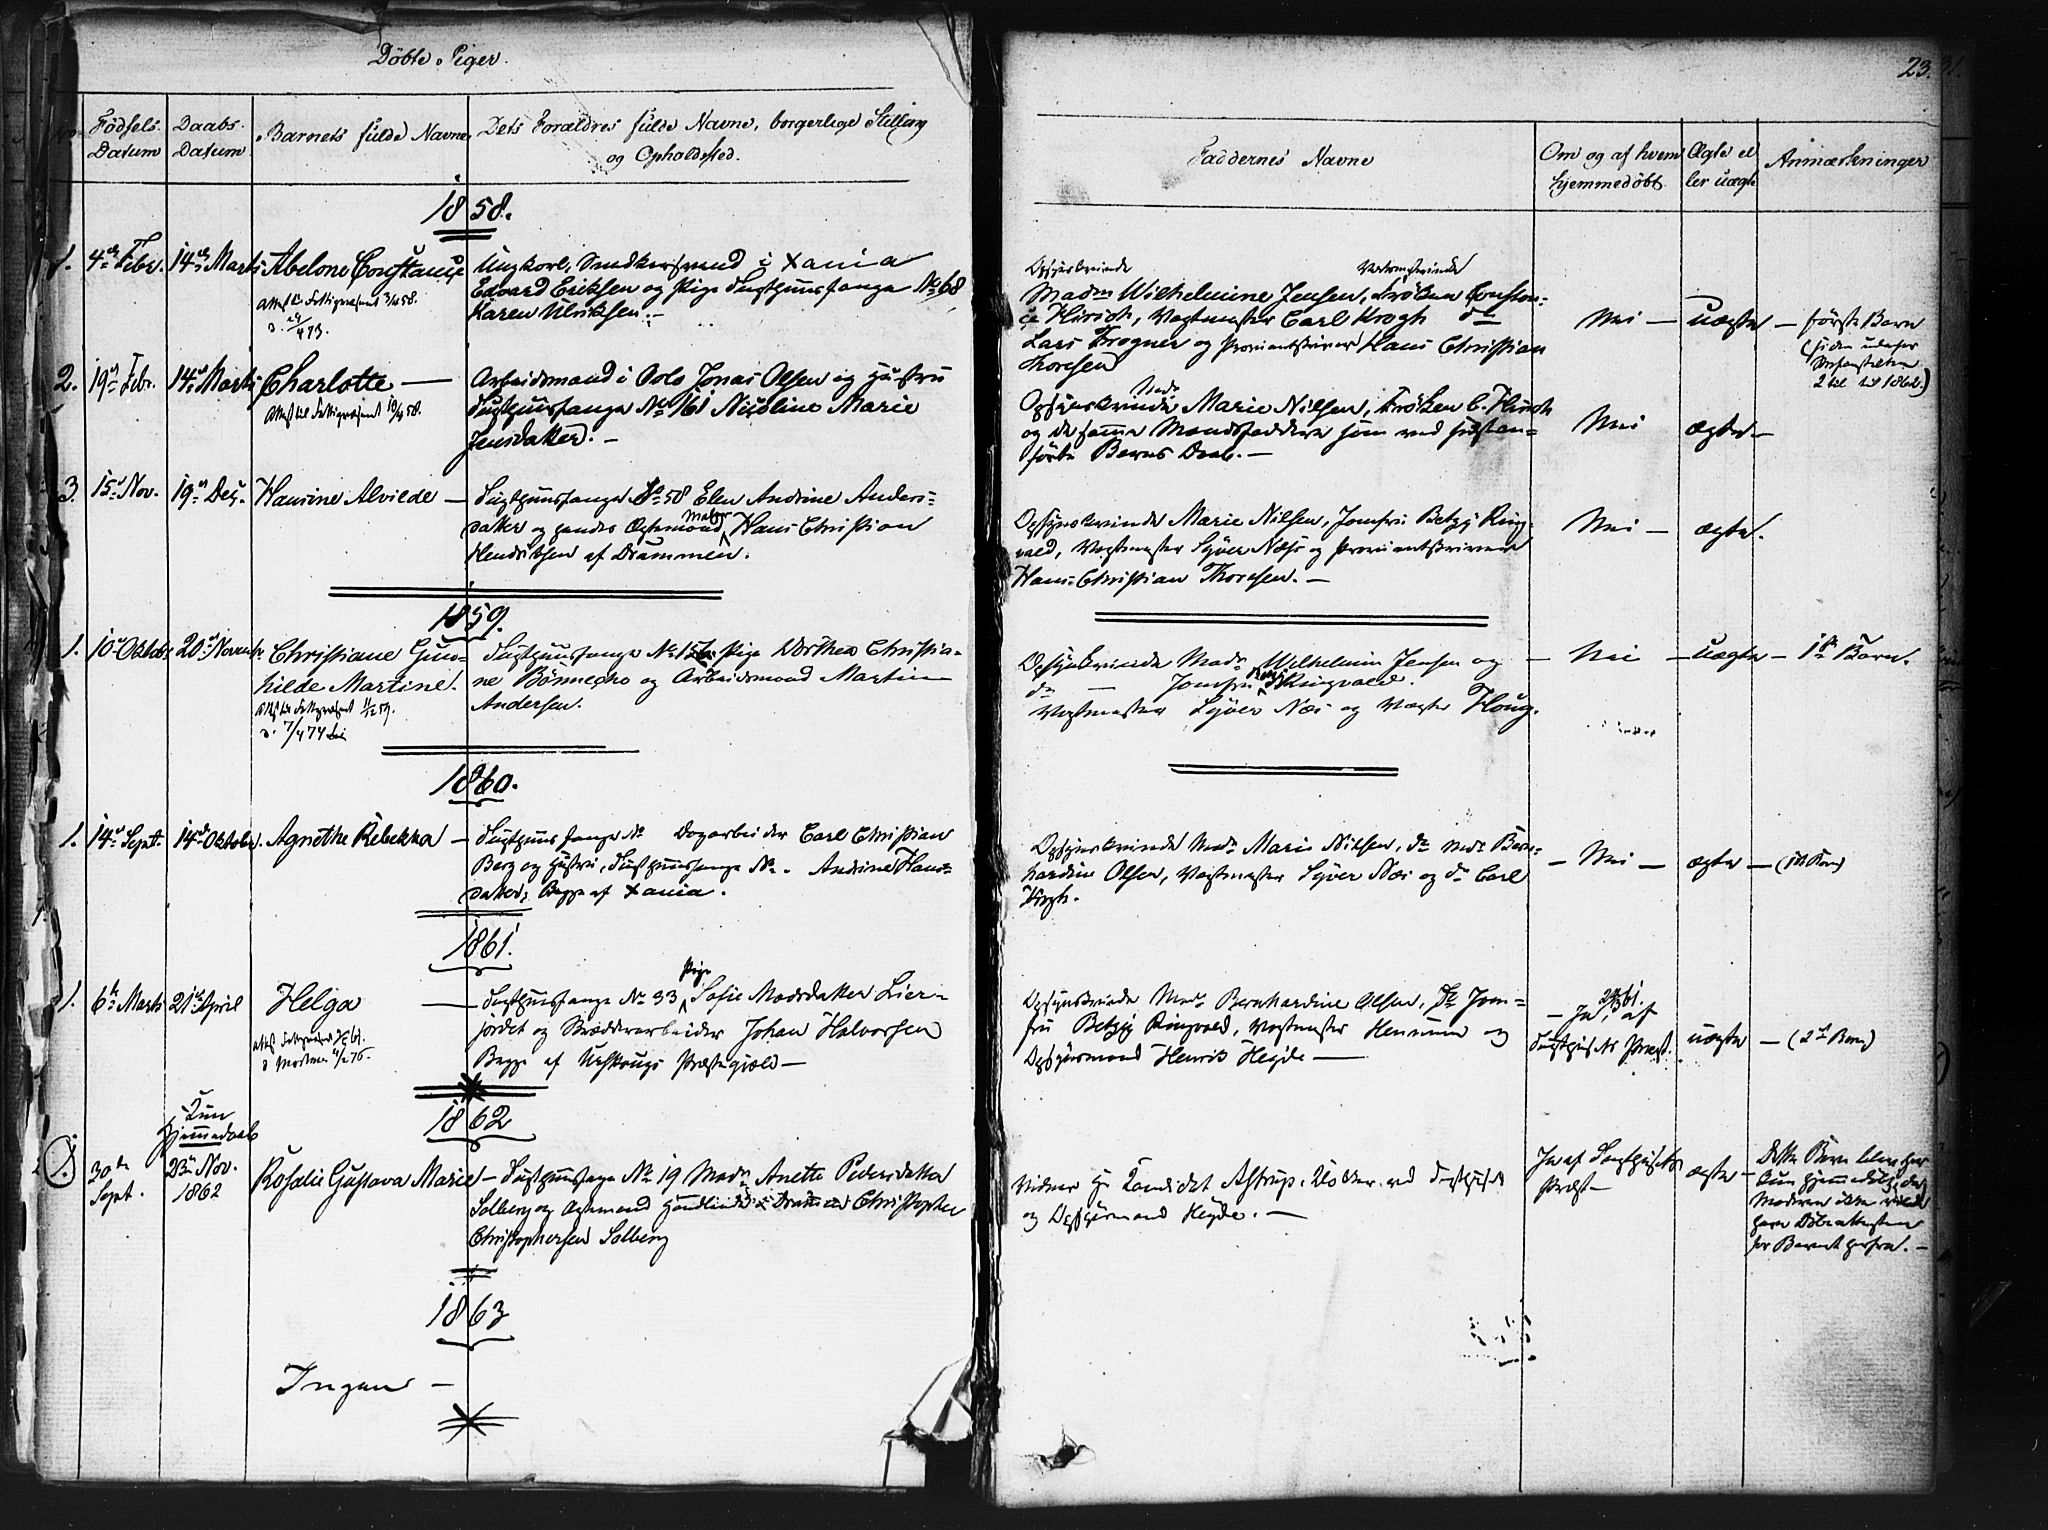 Döbte Piger.
23.
Födsels Datum
Daabs Datum
Barnets fulde Navne
Dets Forældres fulde Navne, borgerlige Stilling
og Opholdssted.
Faddernes Navne
Om og af hvem hjemmedöbt
Ægte eller uægte
Anmærkninger
1858.
1. 4de Febr. 14de Marts Abelone Constance
Ungkarl, Snedkersvend i Xania
Edvard Eriksen og Pige Tugthuusfange No 68
Karen Ulriksen.
Opsynskvinde
Madm Wilhelmine Jensen, Fröken Constan-
ce Hirsch, Vagtmester Carl Krogh do
Lars Brogner og Proviantskriver Hans Christian
Thoresen
Nei — uægte — förste Barn
2 til 1862.)
2. 19de Febr. 14de Marts Charlotte —
Arbeidsmand i Oslo Jonas Olsen og Hustru
Tugthuusfange No 161 Nicoline Marie
Jensdatter. —
Opsynskvinde Madm Marie Nilsen, Fröken C. Hirsch
og de samme Mandsfaddere som ved föstan-
förte Barns Daab. —
Nei ægte —
3. 15de Nov. 19de Dec. Hansine Alvilde —
Tugthuusfange No 58 Elen Andrine Anders-
datter og hendes Ægtemand Maler Hans Christian
Hendriksen af Drammen.
Opsynskvinde Marie Nilsen, Jomfru Betzy Ring-
vald, Vagtmester Syver Næs og Proviantskriver
Hans Christian Thoresen. —
Nei — ægte.
1859.
1. 10de Oktobr. 20de Novembr. Christiane Gun-
hilde Martine.
Tugthuusfange Pige Dorthea Christia-
ne Bönnecho og Arbeidsmand Martin
Andersen.
Opsynskvinde Madm Wilhelmine Jensen og
do — Jomfru Betzy Ringvald.
Vagtmester Syver Næs og Vægter Haug.
— Nei — uægte — 1ste Barn.
1860.
1. 14de Septr. 14de Oktober. Agnethe Rebekka —
Tugthuusfange No Dagarbeider Carl Christian
Berg og Hustru, Tugthuusfange No. Andrine Hans-
datter, Begge af Xania.
Opsynskvinde Madm Marie Nilsen, do Madm Bern-
hardine Olsen, Vagtmester Syver Næs og do Carl
Krogh.
— Nei — ægte — (1ste Barn)
1861.
1. 6te Marts 21de April Helga —
Tugthuusfange No 33 Pige Sofie Madsdatter Lier-
jordet og Skrædderarbeider Johan Halvorsen
Begge af Urskougs Præstegjæld —
Opsynskvinde Madm Bernhardine Olsen, do Jom-
fru Betzy Ringvald, Vagtmester Hennum og
Opsynsmand Henrik Heyde —
— Ja, af
Tugthusets Præst. uægte — (2det Barn)
1862
Kun
Hjemmedaab
1. 30te Sept. 23de Nov. 1862 Rosalie Gustava Marie —
Tugthuusfange No 19 Madm Anette Pedersdatter
Solberg og Ægtemand Handlende i Drammen Christopher
Christophersen Solberg
Vidner Hr Kandidat Astrup, Klokker ved Tugthuset
og Opsynsmand Heyde. —
Ja af Tugthusets
Præst — ægte —
Dette Barn blev her
kun hjemmedöbt, da
Moderen ikke vilde
have Döbeattesten
for Barnet herfra. —
1863
Ingen —